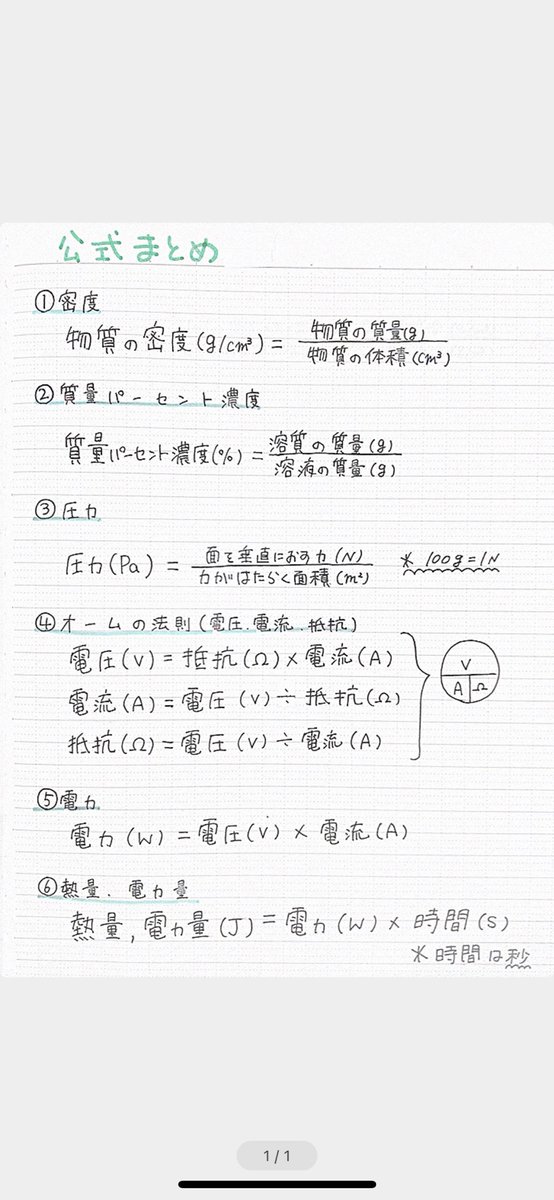 公式まとめ
①密度
物質の密度(g/cm³) = 物質の質量(g) / 物質の体積(cm³)
②質量パーセント濃度
質量パーセント濃度(%) = 溶質の質量(g) / 溶液の質量(g)
③圧力
圧力(Pa) = 面を垂直におす力(N) / 力がはたらく面積(m²) * 100g=1N
④オームの法則(電圧.電流.抵抗)
電圧(V) = 抵抗(Ω) × 電流(A)
電流(A) = 電圧(V) ÷ 抵抗(Ω)
抵抗(Ω) = 電圧(V) ÷ 電流(A)
V
A Ω
⑤電力
電力(W) = 電圧(V) × 電流(A)
⑥熱量.電力量
熱量,電力量(J) = 電力(W) × 時間(S)
*時間は秒
1/1